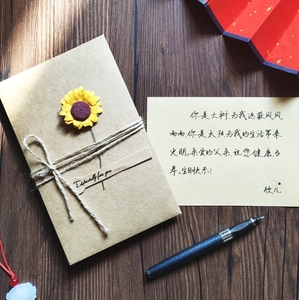 Especially for you
你是大树为我遮蔽风风
雨雨你是太阳为我的生活带来
光明。亲爱的父亲祝您健康长
寿。生日快乐!